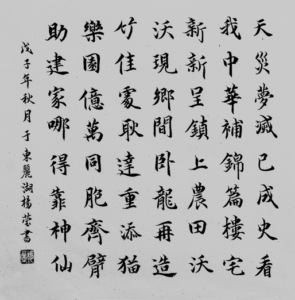 天災夢滅已成史看
我中華補錦篇樓宅
新新呈鎮上農田沃
沃現鄉間卧龍再造
竹佳處耿達重添猫
樂園億萬同胞齊臂
助建家哪得靠神仙
戊子年秋月于東麗湖楊書